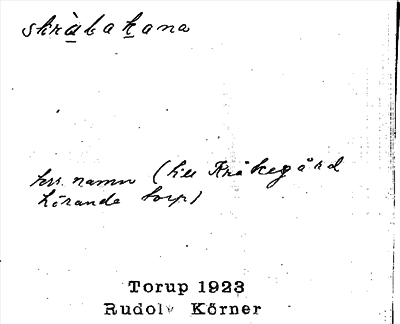 skràbakana
hrs. namn (till Kråkegård
hörande torp)
Torup 1923
Rudolv Körner